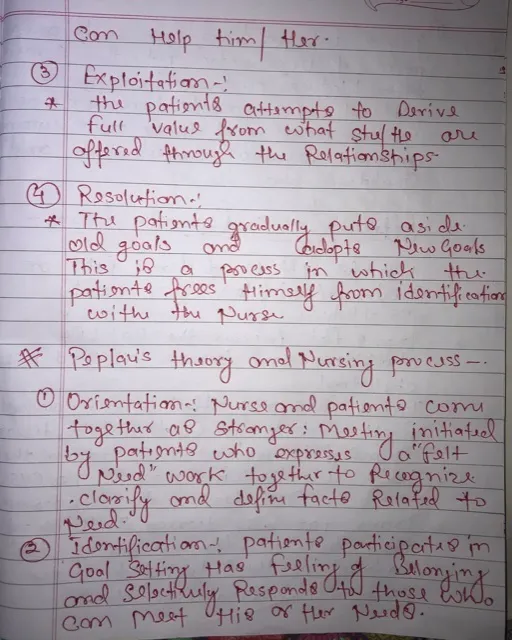 can Help him/ Her.
③ Exploitation-:
* the patients attempts to Derive
full value from what she/he are
offered through the Relationships.
④ Resolution-:
* The patients gradually puts aside
old goals and adopts New Goals
This is a process in which the
patients frees Himself from identification
withe the Nurse
# Peplau's theory and Nursing process-.
① Orientation-: Nurse and patients come
together as Stranger: Meeting initiated
by patients who expresses a "felt
Need" work together to Recognize
. clarify and define facts Related to
Need.
② Identification-: patients participates in
Goal Setting Has feeling of Belonging
and Selectively Responds to those who
can meet His or Her Needs.